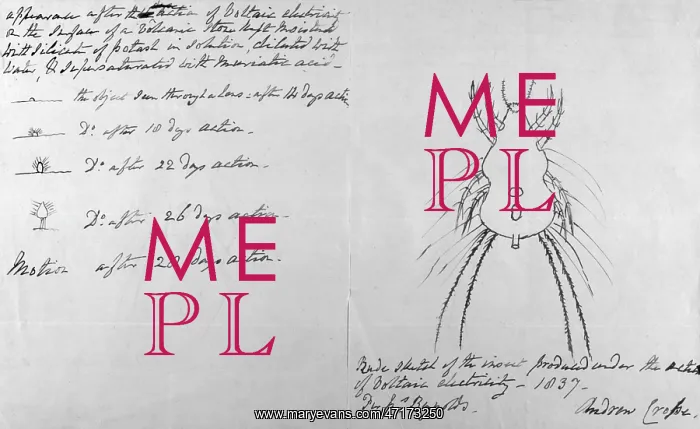 appearance after the action of Voltaic electricity
on the surface of a Volcanic Stone kept moistened
with Silicate of potash in solution, diluted with
Water, & supersaturated with Muriatic acid -
the object seen through a lens: after 14 days action
Do. after 18 days action -
Do. after 22 days action -
Do. after 26 days action -
Motion after 28 days action -
ME
PL
ME
PL
Rude sketch of the insect produced under the action
of Voltaic electricity - 1837.
Andrew Crosse.
www.maryevans.com/47173250